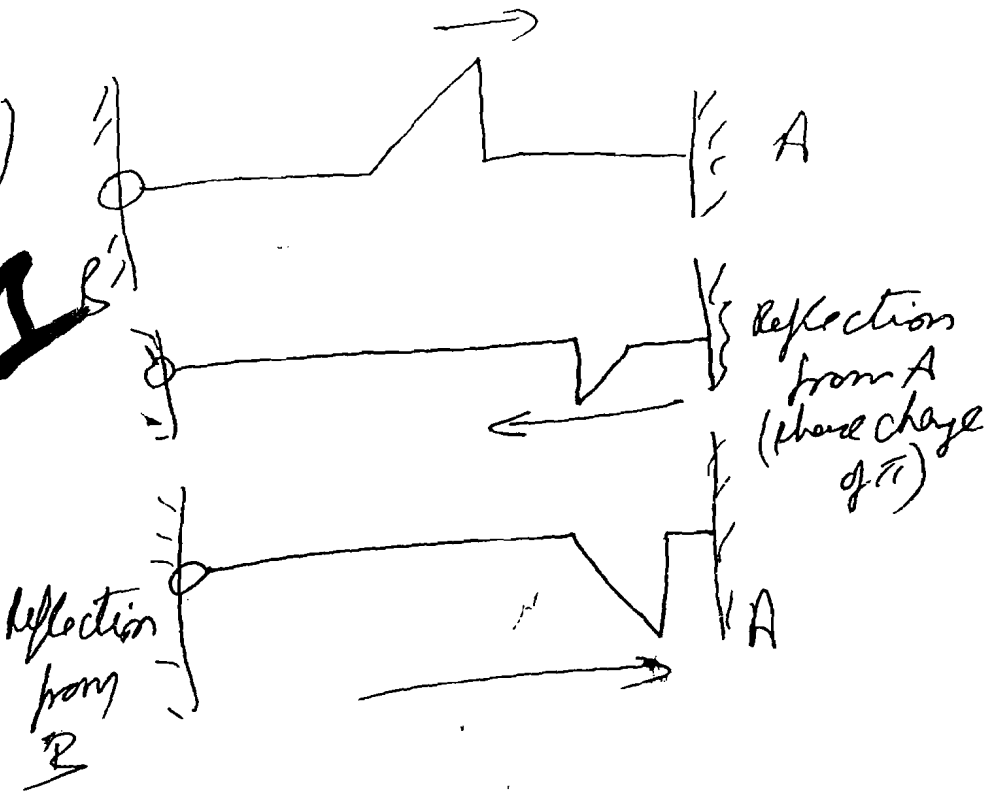 )
A
I
B
Reflection
from A
(phase change
of π)
A
Reflection
from
B